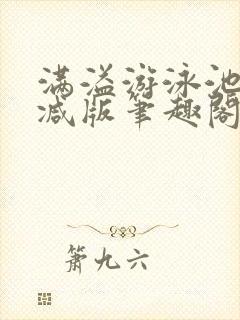 满溢游泳池
减版笔趣阁
箫九六